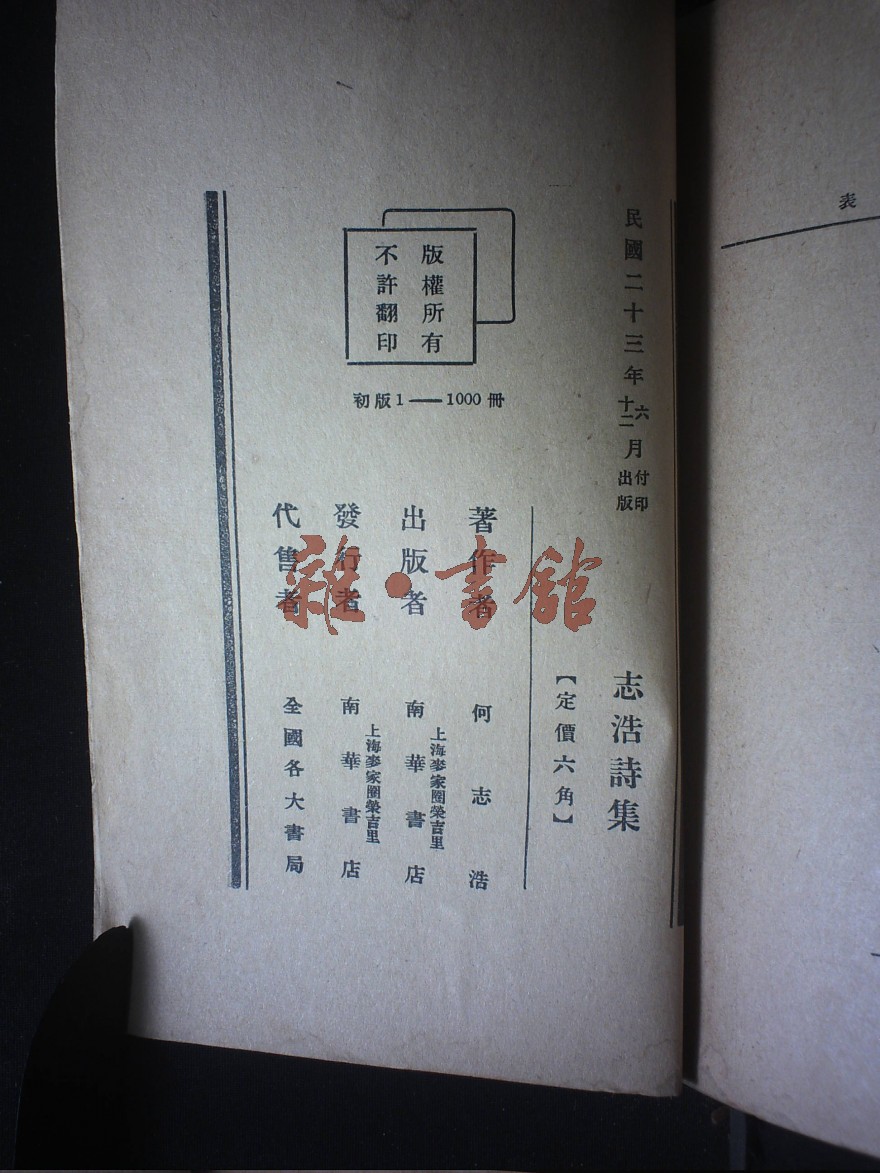 民國二十三年六月付印
十二月出版
志浩詩集
【定價六角】
著作者 何志浩
出版者 上海麥家圈榮吉里 南華書店
發行者 上海麥家圈榮吉里 南華書店
代售者 全國各大書局
版權所有
不許翻印
初版1——1000冊
雜·書館
表